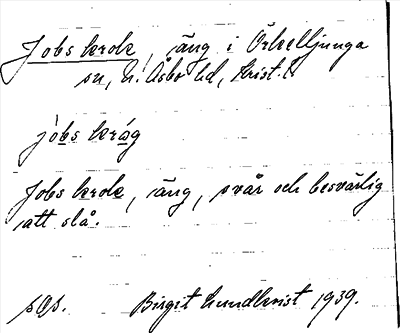 Jobs krok, äng i Örkelljunga
sn, N. Åsbo hd, Krist. l.
jòbs kråg
Jobs krok, äng, svår och besvärlig
att slå.
sOs. Birgit Lundkvist 1939.